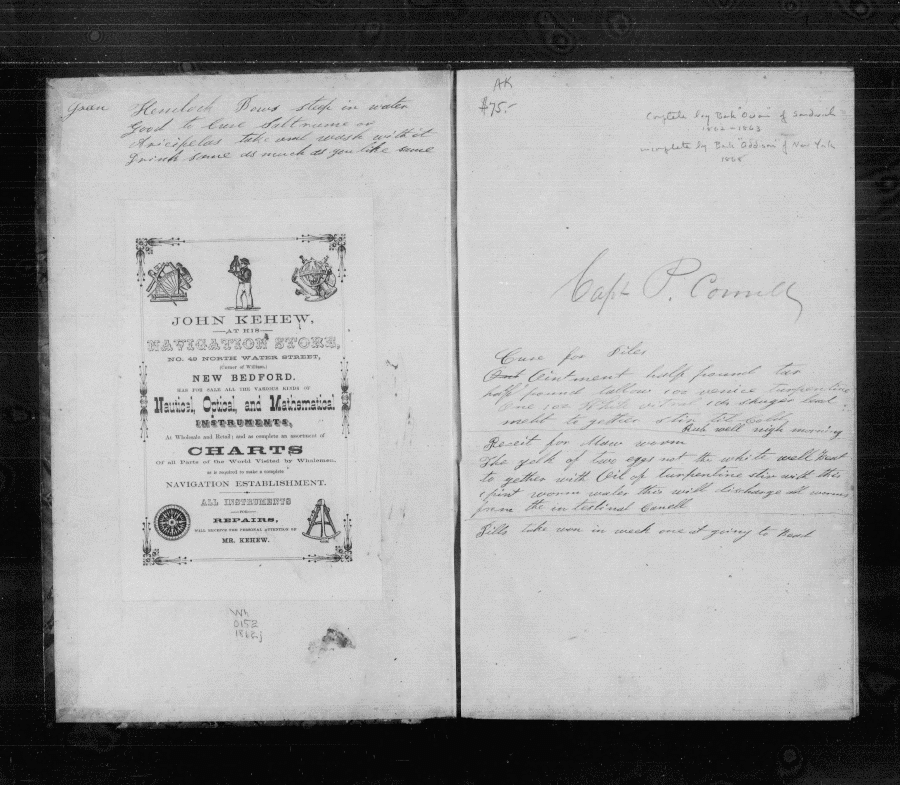 Green Hemlock Bows steep in water
Good to Cure Saltrume or
Aricipelas take and wash with it
Drink some as much as you like same
JOHN KEHEW,
AT HIS
NAVIGATION STORE,
NO. 49 NORTH WATER STREET,
(Corner of William,)
NEW BEDFORD.
HAS FOR SALE ALL THE VARIOUS KINDS OF
Nautical, Optical, and Mathematical
INSTRUMENTS,
At Wholesale and Retail; and as complete an assortment of
CHARTS
Of all Parts of the World Visited by Whalemen,
as is required to make a complete
NAVIGATION ESTABLISHMENT.
ALL INSTRUMENTS
FOR
REPAIRS,
WILL RECEIVE THE PERSONAL ATTENTION OF
MR. KEHEW.
Wh
1862j
AK
$75.-
Complete log Bark "Ocean" of Sandwich
1862-1863
incomplete log Bark "Addison" of New York
1865
Capt P. Connell
Cure for Piles
Ointment half pound tar
half pound tallow one ounce turpentine
melt to gether stir till Cold
Rub well nigh morning
Receit for Maw worm
The yolk of two eggs not the white well Beat
to gether with Oil of turpentine stir with this
1 pint worm water this will discharge all worms
from the intestinal Canell
Pills take won in week one at going to Bead